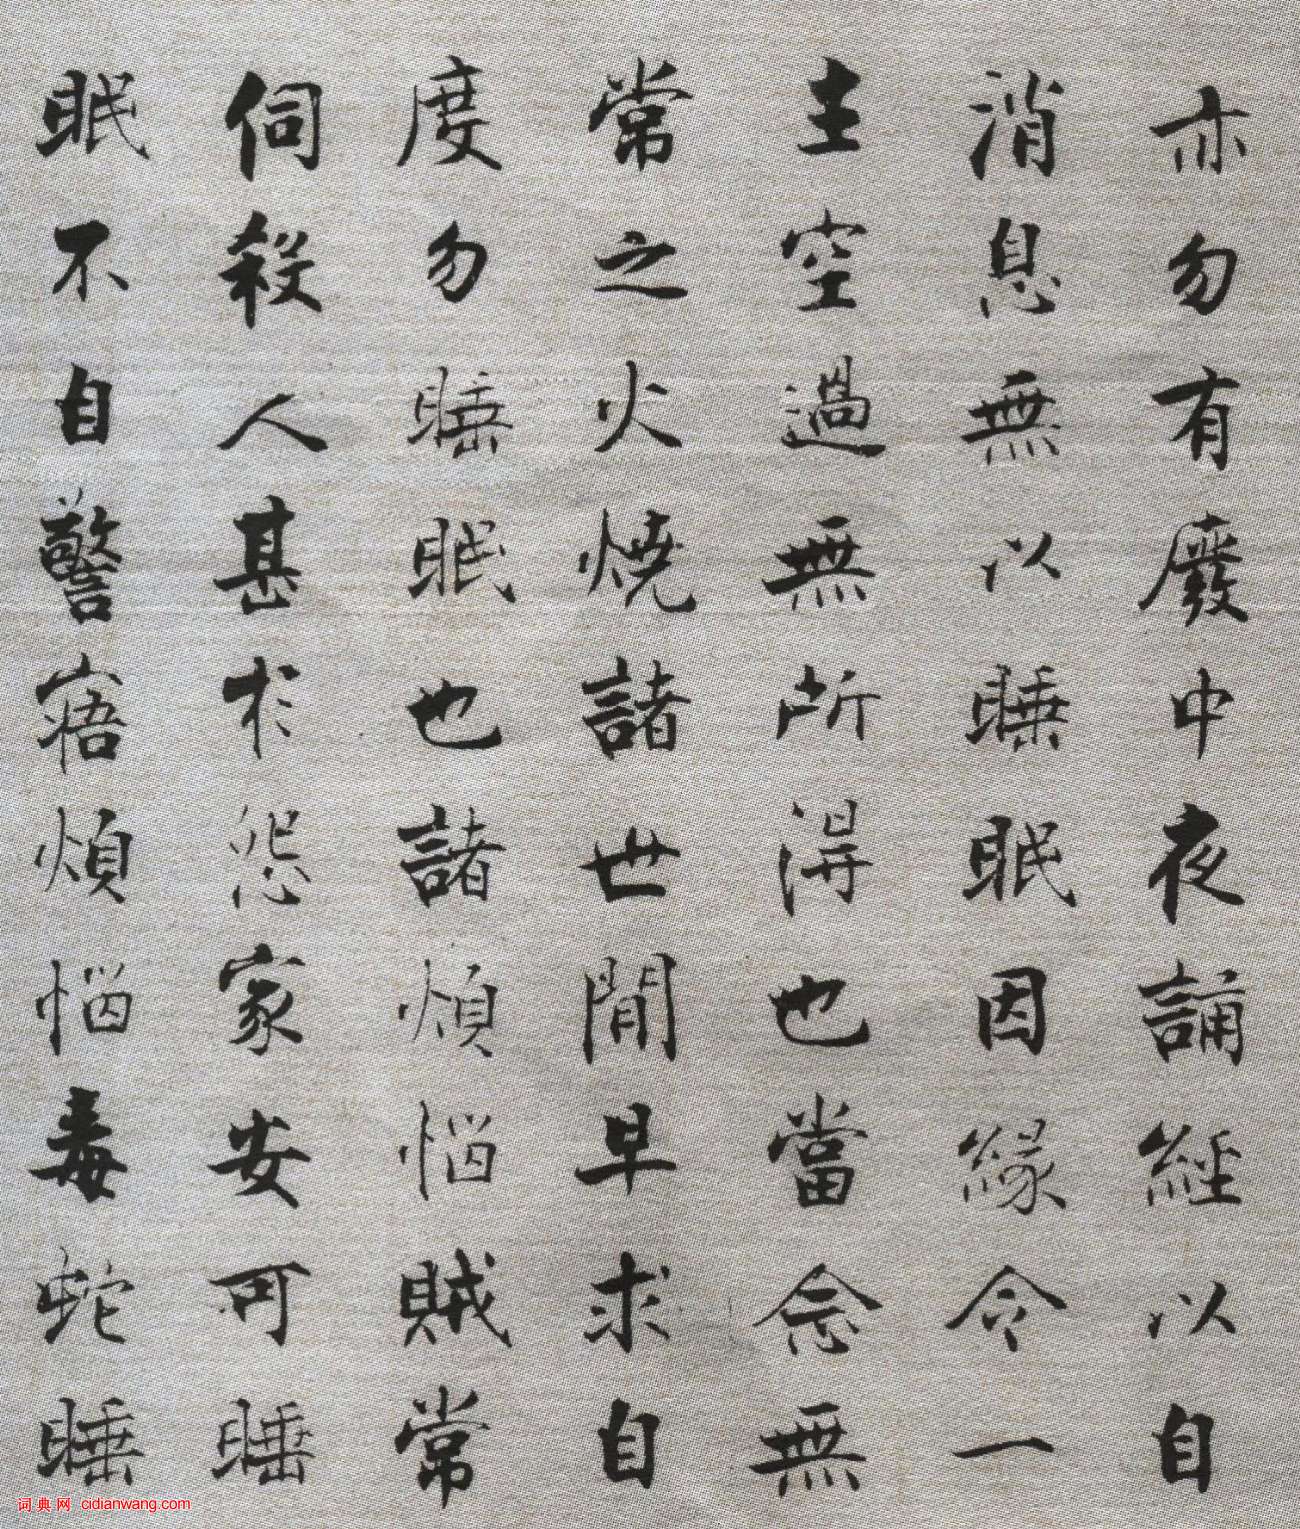 亦勿有廢中夜誦經以自
消息無以睡眠因緣令一
生空過無所得也當念無
常之火燒諸世間早求自
度勿睡眠也諸煩惱賊常
伺殺人甚於怨家安可睡
眠不自警寤煩惱毒蛇睡
词典网 cidianwang.com